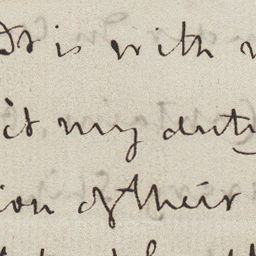 It is with
it my duty
ion of their